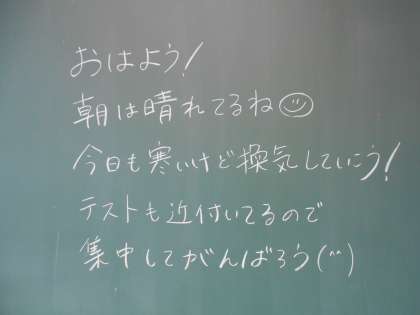 おはよう!
朝は晴れてるね☺
今日も寒いけど換気していこう!
テストも近付いてるので
集中してがんばろう(^^)